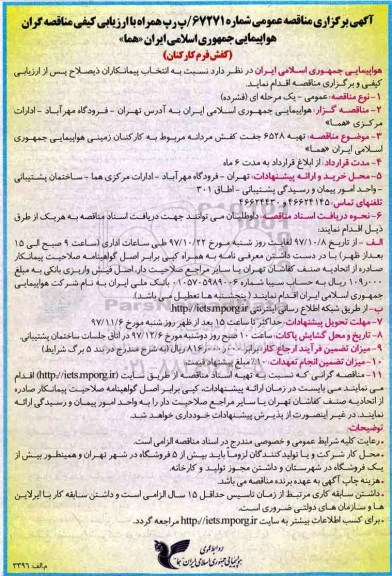 آگهی برگزاری مناقصه عمومی شماره ۶۷۲۷۱/پ رپ همراه با ارزیابی کیفی مناقصه گران
هواپیمایی جمهوری اسلامی ایران «هما»
(کفش فرم کارکنان)
هواپیمایی جمهوری اسلامی ایران در نظر دارد نسبت به انتخاب پیمانکاران ذیصلاح پس از ارزیابی
کیفی و برگزاری مناقصه اقدام نماید.
۱- نوع مناقصه: عمومی - یک مرحله ای (فشرده)
۲- مناقصه گزار: هواپیمایی جمهوری اسلامی ایران به آدرس تهران - فرودگاه مهرآباد - ادارات
مرکزی «هما»
۳- موضوع مناقصه: تهیه ۶۵۲۸ جفت کفش مردانه مربوط به کارکنان زمینی هواپیمایی جمهوری
اسلامی ایران «هما»
۴- مدت قرارداد: از ابلاغ قرارداد به مدت ۶ ماه
۵- محل خرید و ارائه پیشنهادات: تهران - فرودگاه مهرآباد - ادارات مرکزی هما - ساختمان پشتیبانی
- واحد امور پیمان و رسیدگی پشتیبانی - اطاق ۳۰۱
تلفنهای تماس: ۴۶۶۲۴۱۴۵ و ۴۶۶۲۴۴۳۰
۶- نحوه دریافت اسناد مناقصه: داوطلبان می توانند جهت دریافت اسناد مناقصه به هریک از طرق
ذیل اقدام نمایند:
الف - از تاریخ ۹۷/۱۰/۸ لغایت روز شنبه مورخ ۹۷/۱۰/۲۲ طی ساعات اداری (ساعت ۹ صبح الی ۱۵
بعداز ظهر) با در دست داشتن معرفی نامه به همراه کپی برابر اصل گواهینامه صلاحیت پیمانکار
صادره از اتحادیه صنف کفاشان تهران یا سایر مراجع صلاحیت دار، اصل فیش واریزی بانکی به مبلغ
۱۰۹۰۰۰۰ ریال به حساب سیبا شماره ۰۱۰۵۷۰۵۹۸۹۰۰۶ بانک ملی ایران به نام شرکت هواپیمایی
جمهوری اسلامی ایران اقدام نمایند (پنجشنبه ها تعطیل می باشد).
ب - از طریق شبکه اطلاع رسانی اینترنتی http://iets.mporg.ir
۷- مهلت تحویل پیشنهادات: حداکثر تا ساعت ۱۵ بعد از ظهر روز شنبه مورخ ۹۷/۱۱/۶
۸- تاریخ و محل گشایش پاکات: ساعت ۱۰ صبح روز دوشنبه مورخ ۹۷/۱۲/۶ در اتاق جلسات ساختمان پشتیبانی
۹- میزان تضمین فرآیند ارجاع کار: برابر ریال (به شرح مندرج در بند ۵ برگ شرایط)
۱۰- میزان تضمین انجام تعهدات: ۱۰٪ مبلغ پیشنهادی
۱۱- مناقصه گرانی که نسبت به تهیه اسناد مناقصه از طریق سایت (http://iets.mporg.ir) اقدام
می نمایند می بایست در زمان ارائه پیشنهادات، کپی برابر اصل گواهینامه صلاحیت پیمانکار صادره
از اتحادیه صنف کفاشان تهران یا سایر مراجع صلاحیت دار را به واحد امور پیمان و رسیدگی ارائه
نمایند، در غیر اینصورت از پذیرش پیشنهادات خودداری خواهد شد.
توضیحات
- رعایت کلیه شرایط عمومی و خصوصی مندرج در اسناد مناقصه الزامی است.
- محل کار شرکت و یا تولیدکنندگان لزوما باید بیش از ۵ فروشگاه در شهر تهران و همینطور بیش از
یک فروشگاه در شهرستان و داشتن مجوز تولید و کارخانه.
- هزینه چاپ آگهی به عهده برنده مناقصه می باشد.
- داشتن سابقه کاری مرتبط از زمان تاسیس حداقل ۱۵ سال الزامی است و داشتن سابقه کار با ایرلاین
ها و سازمان های دولتی ضروری است.
- برای کسب اطلاعات بیشتر به سایت http://iets.mporg.ir مراجعه گردد.
روابط عمومی
هواپیمایی جمهوری اسلامی ایران "هما"
م.الف: ۳۳۹۶